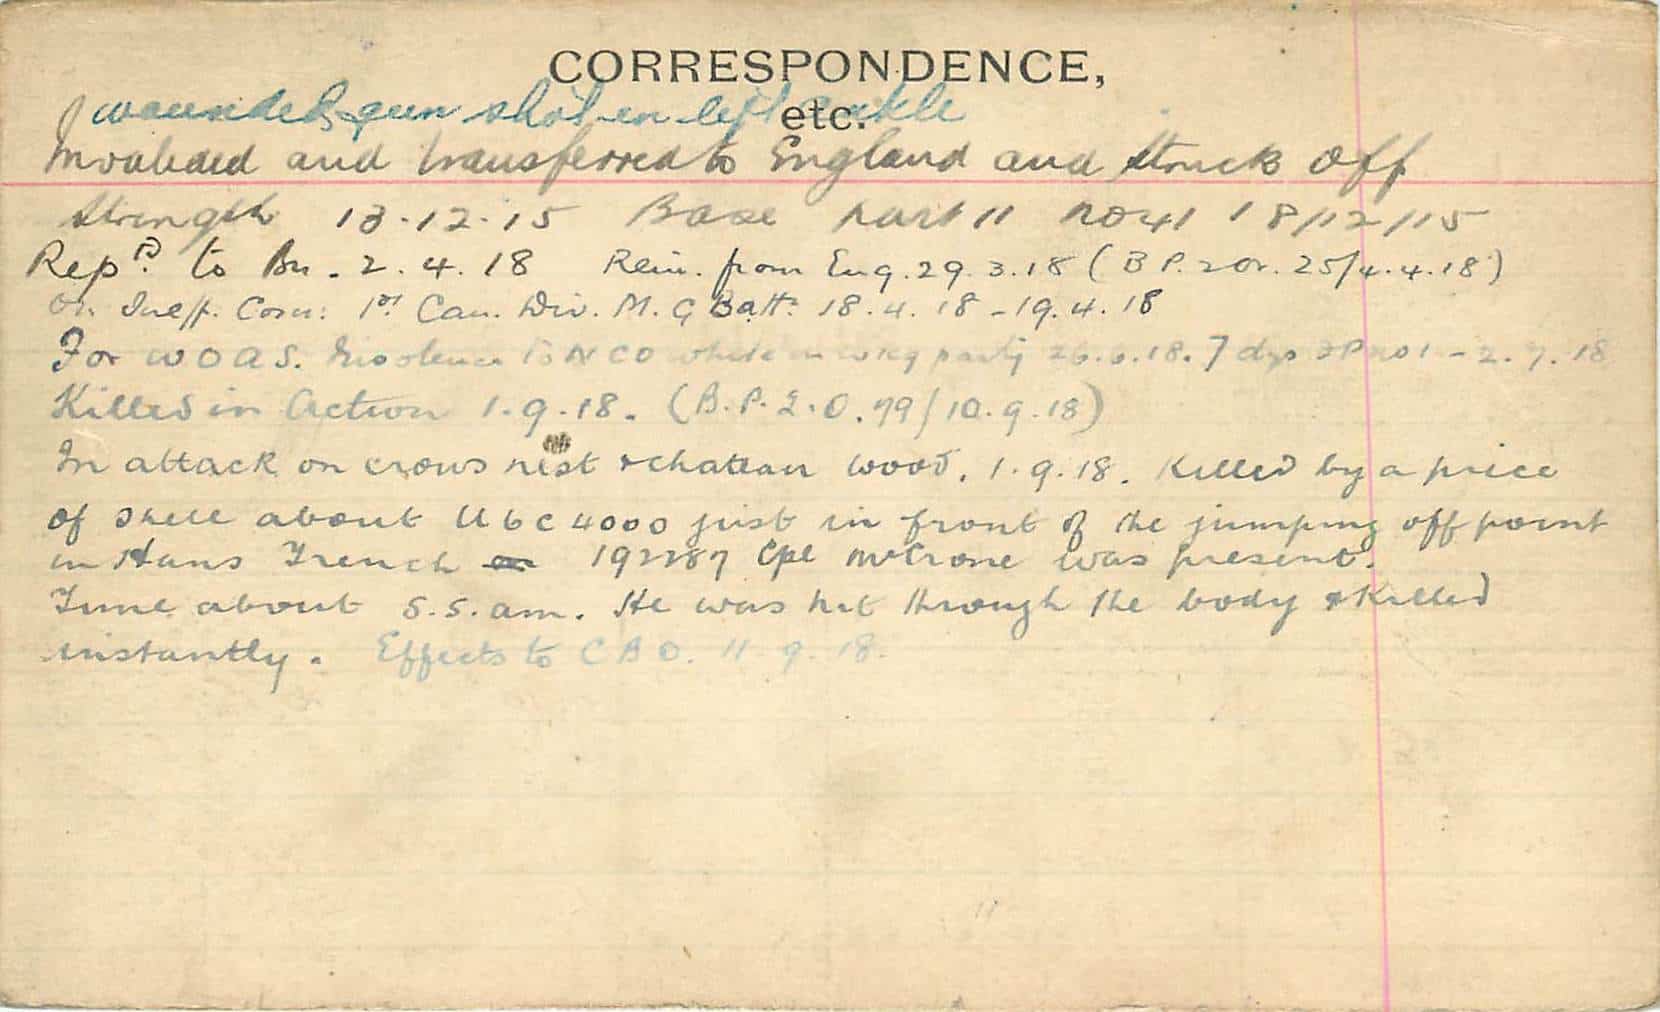 CORRESPONDENCE,
etc.
wounded, gun shot in left ankle
Invalided and transferred to England and struck off
Strength 13.12.15 Base Part 11 No 41 18/12/15
Repd. to Bn. 2.4.18 Rein. from Eng. 29.3.18 (B P. 2 Or. 25/4.4.18)
On Instr. Cour: 1st Can. Div. M. G Batt. 18.4.18 - 19.4.18
For W O A S. Insolence to N C O while in wkg party 26.6.18. 7 dys FP No 1 - 2.7.18
Killed in Action 1.9.18. (B.P.2.O.79/10.9.18)
In attack on crows nest & chateau wood. 1.9.18. Killed by a price
of shell about U6C4000 just in front of the jumping off point
in Hans Trench 192287 Cpl McCrone was present.
Time about 5.5. am. He was hit through the body & killed
instantly. Effects to C B O. 11.9.18.